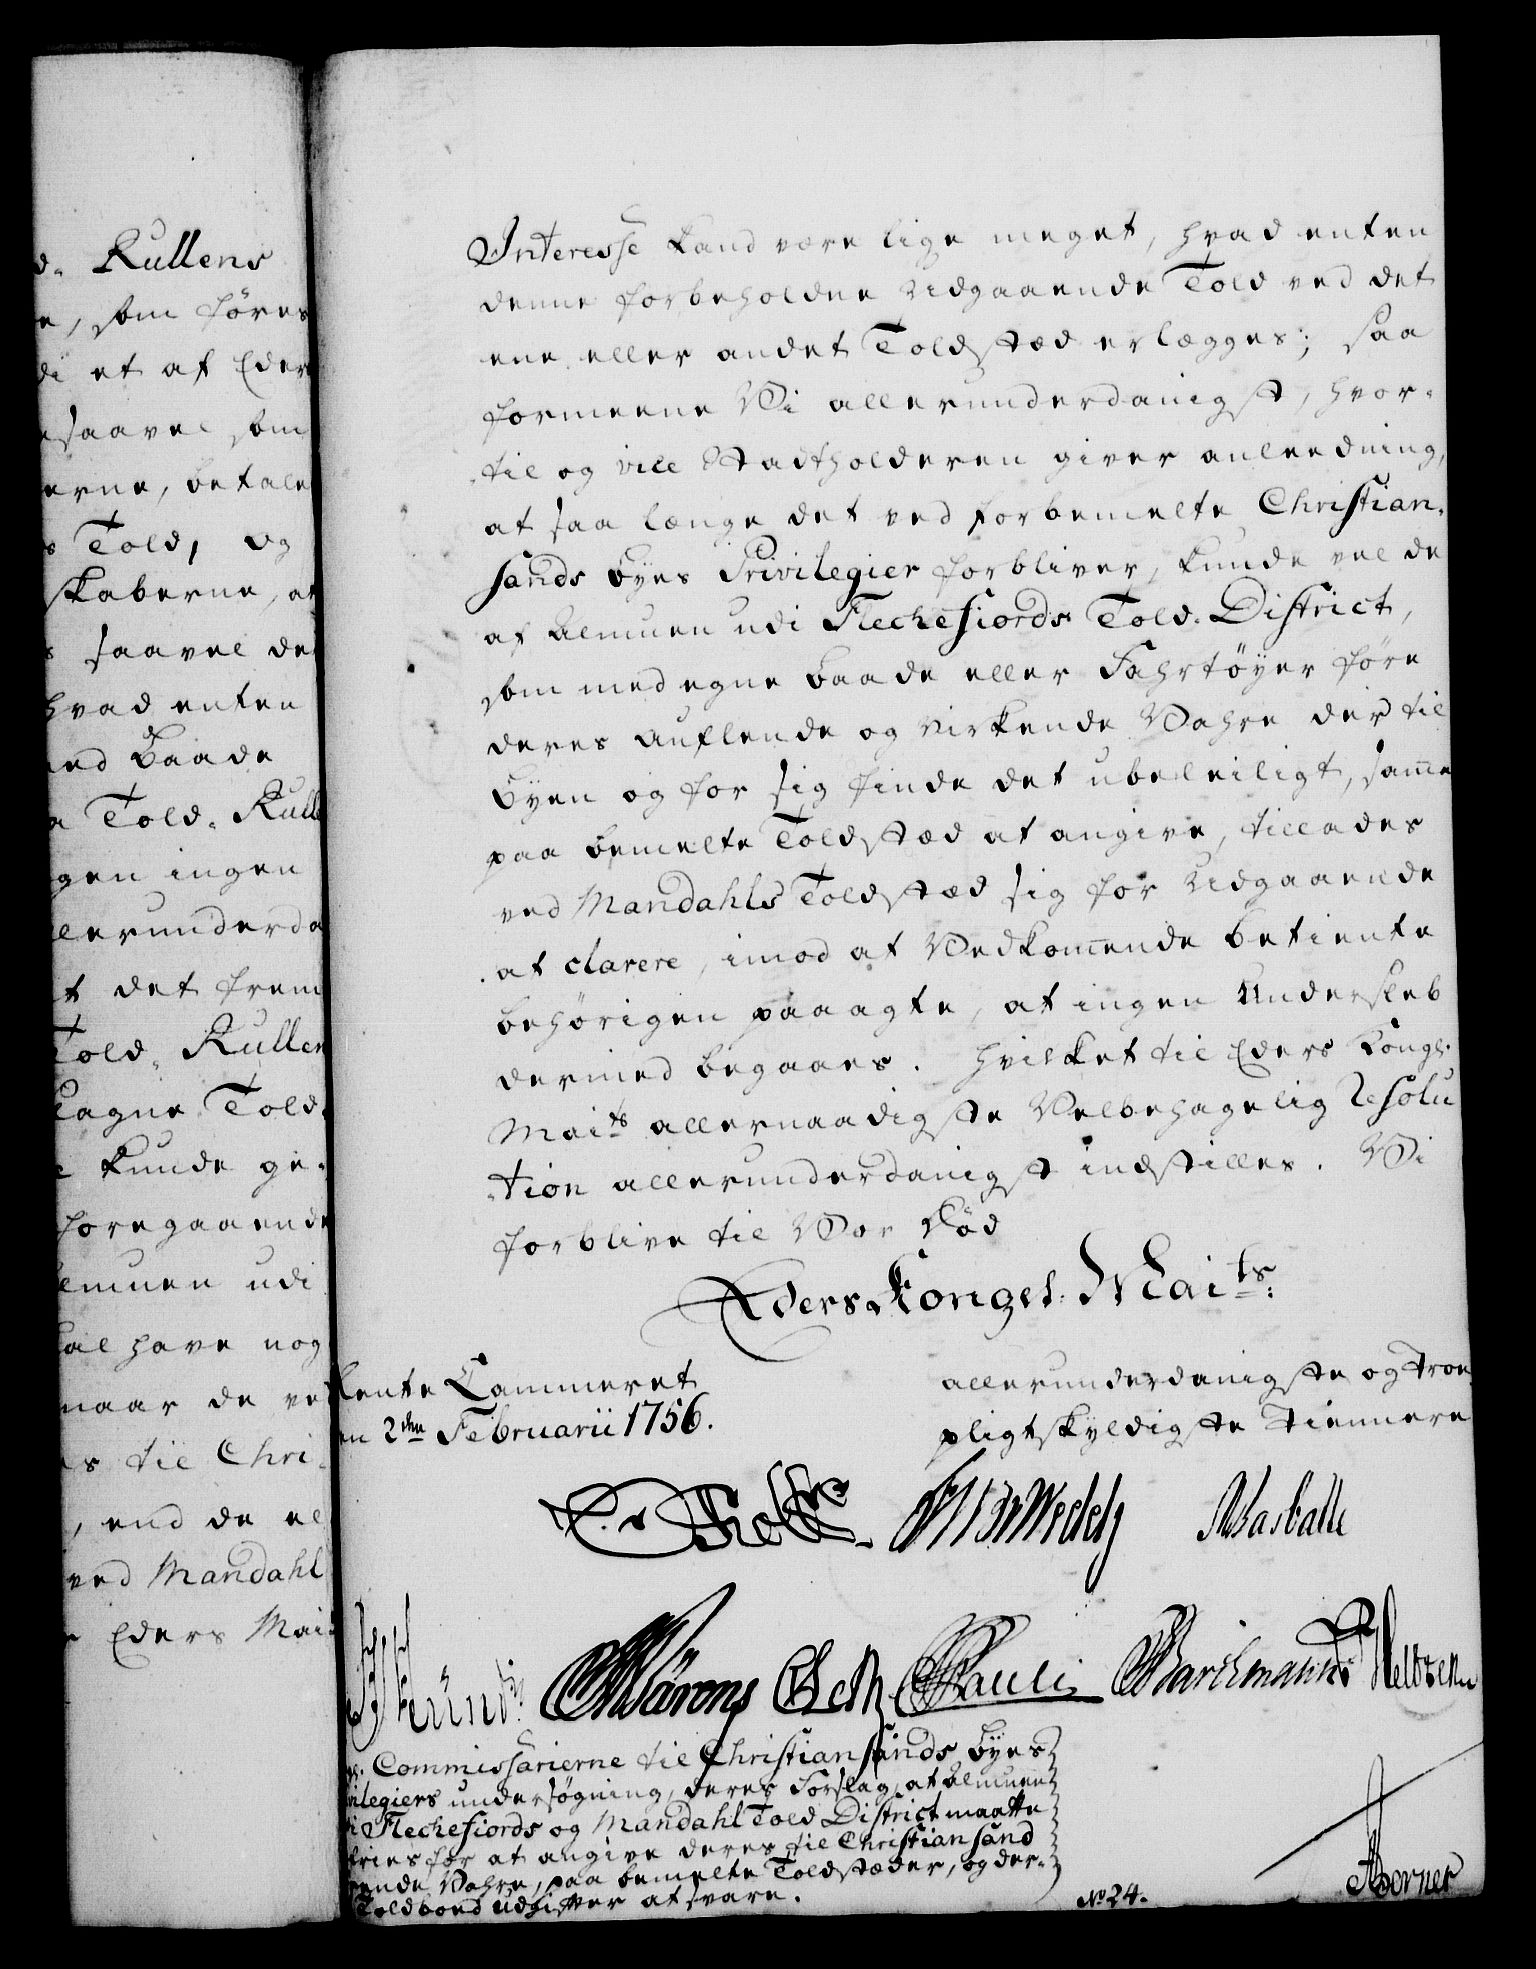 d. Kullens
e, som föres
di et af Eders
saavel som
erne, betale
s Told, og
skaberne, at
s saavel de
hvad enten
ed Baade
a Told. Kull
gen ingen
llerunderda
t det frem
Told. Kullen
Told.
kunde ge-
foregaaende
lmuen udi
al have nog
naar de ve
es til Chri-
, end de el
ved Mandahl
Eders Mai
Interesse kand være lige meget, hvad enten
denne forbeholdne Udgaaende Told ved det
ene eller andet Toldstæd erlægges; saa
formeene Vi allerunderdanigst, hvor-
til og vice Stadtholderen giver anleedning,
at saa længe det ved forbemelte Christian-
sands Byes Privilegier forbliver, kunde vel de
af Almuen udi Flechefiords Told-District,
som med egne Baade eller Fahrtöyer före
deres auflende og virkende Vahre der til
Byen og for sig finde det ubeleiligt, same
paa bemelte Toldstæd at angive, tillades
ved Mandahls Toldstæd sig for Udgaaende
at clarere, imod at Vedkomende betiente
behörigen paaagte, at ingen Underslæb
dermed begaaes. Hvilket til Eders Kongl.
Maits allernaadigste Velbehagelig Resolu
-tion allerunderdanigst indstilles. Vi
forblive til Vor Död
Eders Kongel. Maits:
Rente Cammeret
en 2den Februarii 1756.
allerunderdanigste og troe
pligtskyldigste Tiennere
Holck Wedel
Pauli Barchmann
gl. Commissarierne til Christiansands Byes
vilegiers undersøgning, deres Forslag, at Almuen
i Flechefiords og Mandahl Told District maatte
fries for at angive deres til Christiansand
rende Vahre, paa bemelte Toldstæder, og der-
Toldbord Udgifter at svare.
No 24.